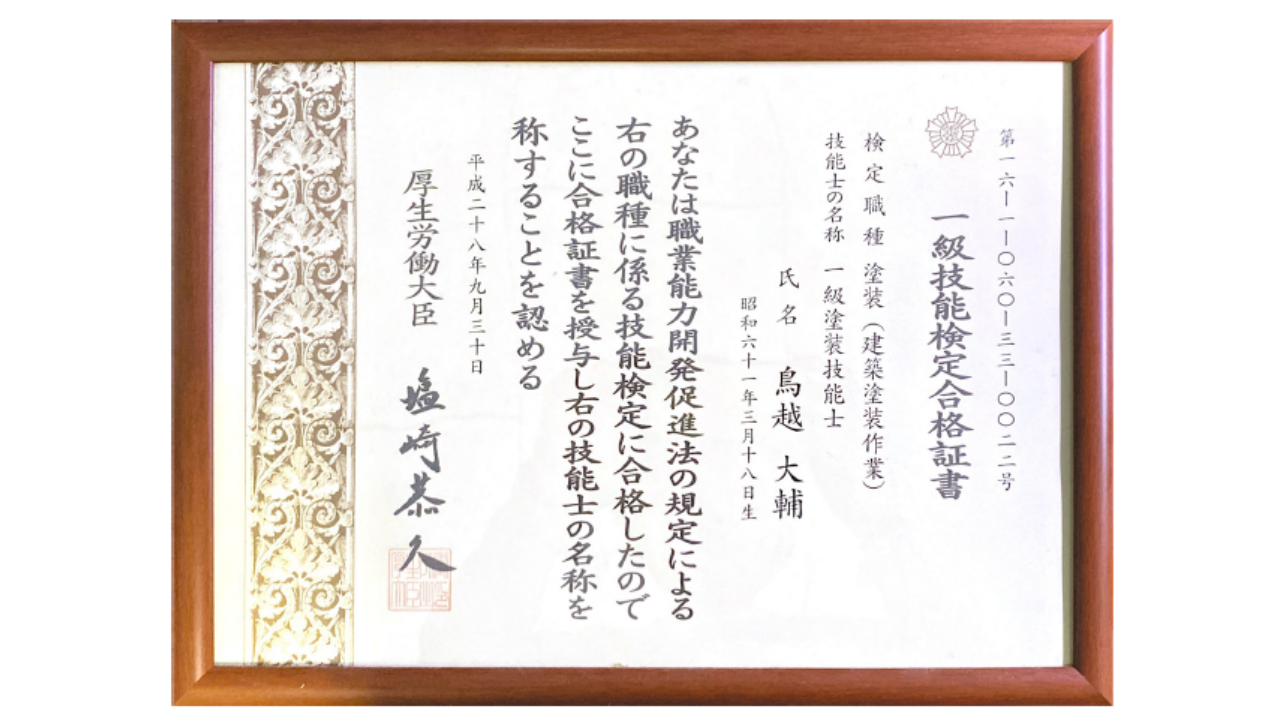 第一六―一―〇六〇―三三―〇〇二二号
一級技能検定合格証書
検定職種 塗装(建築塗装作業)
技能士の名称 一級塗装技能士
氏名 鳥越 大輔
昭和六十一年三月十八日生
あなたは職業能力開発促進法の規定による
右の職種に係る技能検定に合格したので
ここに合格証書を授与し右の技能士の名称を
称することを認める
平成二十八年九月三十日
厚生労働大臣 塩崎恭久